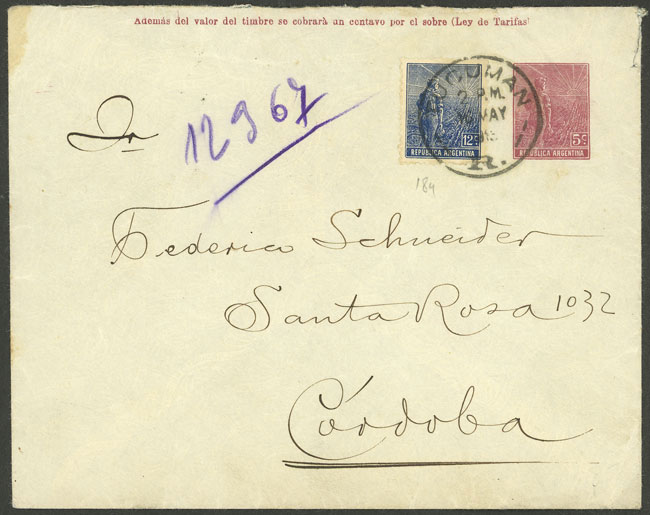 Además del valor del timbre se cobrará un centavo por el sobre (Ley de Tarifas)
12967
TUCUMAN
2 P.M.
MAY
R.
12 c
REPUBLICA ARGENTINA
5c
REPUBLICA ARGENTINA
184
Federico Schneider
Santa Rosa 1032
Córdoba